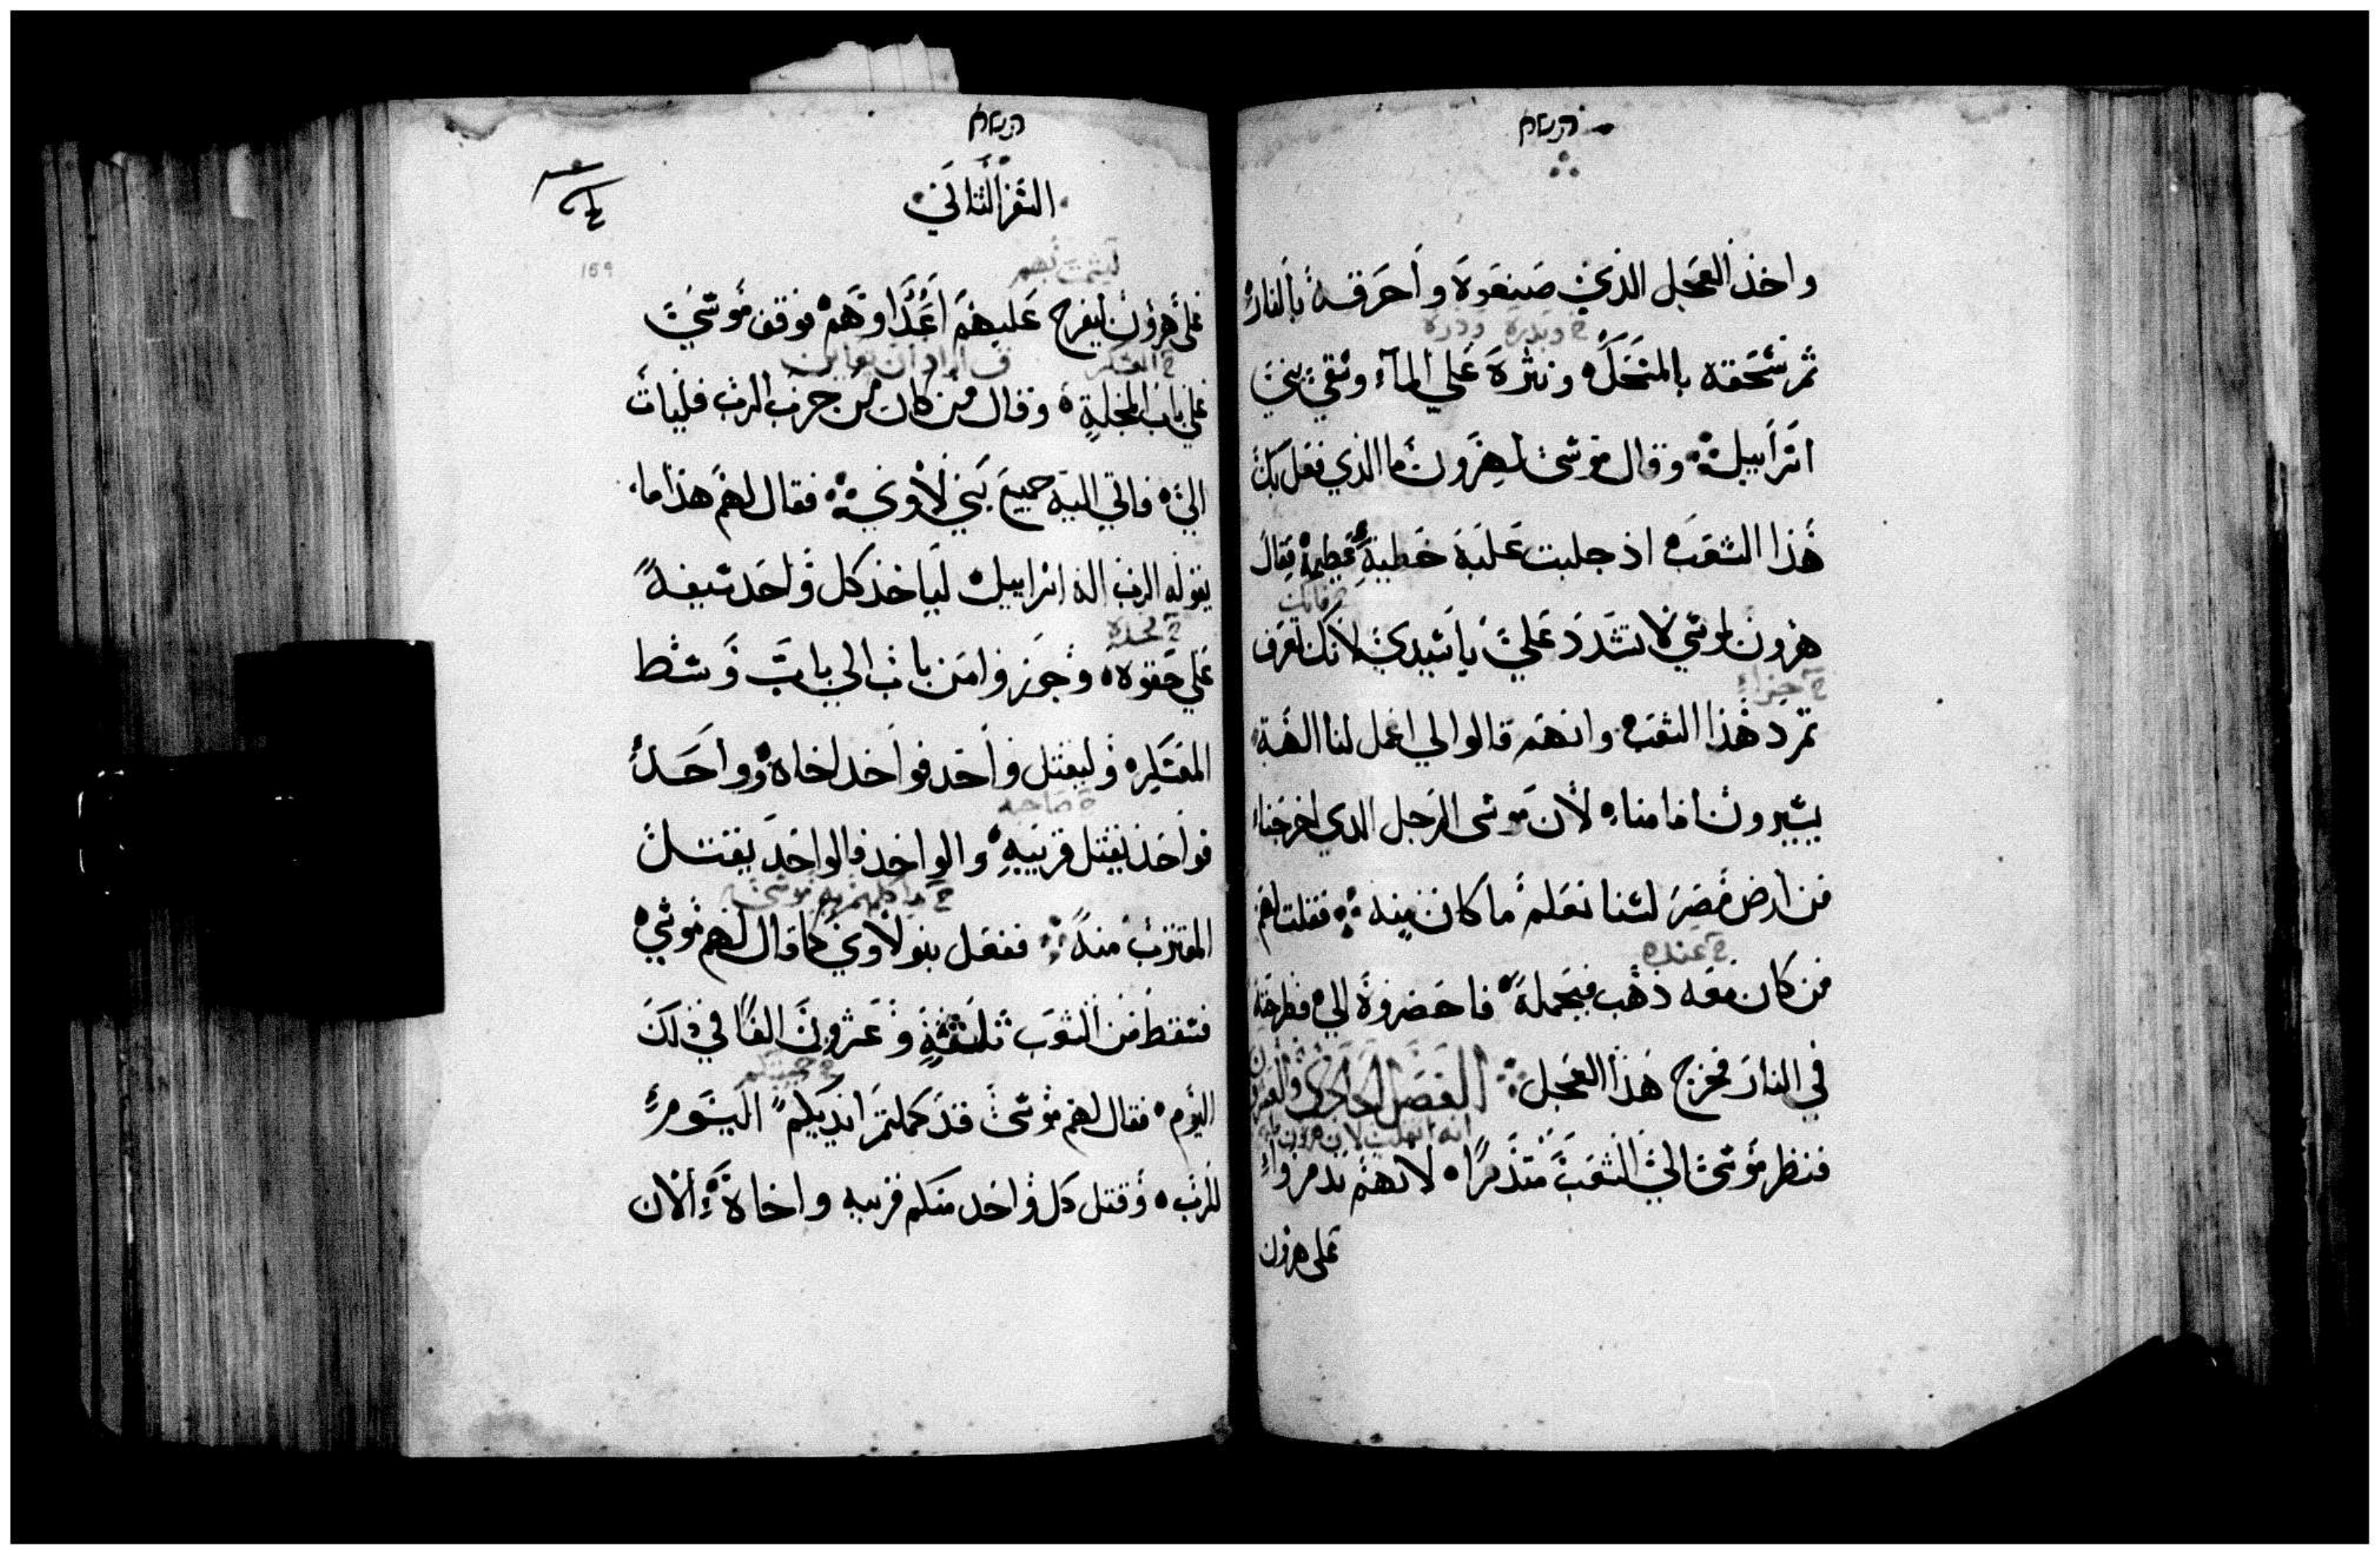 واخذ العجل الذي صنعوه واحرقه بالنار
وبدره وذره
ثم سحقه بالمنخل ونثره علي المآء وسقي بني
اسراييل وقال موسى لهرون ما الذي فعل بك
هذا الشعب اذ جلبت عليه خطية عظيمة فقال
فانك
هرون لموسي لا تشدد علي يا سيدي لانك تعرف
تمرد هذا الشعب وانهم قالوا لي اعمل لنا الهة
يسيرون امامنا لان موسى الرجل الدي اخرجنا
من ارض مصر لسنا نعلم ما كان منه فقلت لهم
ح عنده
من كان معه ذهب فيجمله فاحضروه الي فطرحته
في النار فخرج هذا العجل الفصل الحادي والعشرون
فنظر موسى الي الشعب متذمرا لانهم تدمروا
على هرون
السفر الثاني
159
ليشمت بهم
على هرون ليفرح عليهم اعداوهم فوقف موسي
ح العسكر
علي باب المحلة وقال من كان من حزب الرب فليات
الي فاتي اليه جميع بني لاوي فقال لهم هذا ما
يقوله الرب اله اسراييل لياخذ كل واحد سيفه
ح فخده
علي حقوه وجوزوا من باب الي باب وسط
المعسكر وليقتل واحد فواحد اخاه وواحد
صاحبه
فواحد يقتل قريبه والواحد فالواحد يقتل
المقترب منه ففعل بنو لاوي كما قال لهم موسي
فسقط من الشعب ثلثة وعشرون الفا في ذلك
اليوم فقال لهم موسى قد كملتم ايديكم اليوم
للرب وقتل كل واحد منكم قريبه واخاه الان